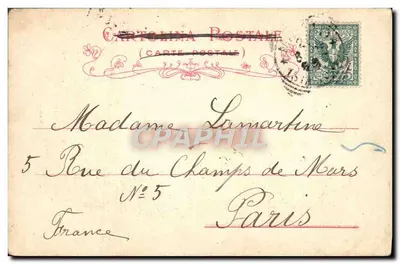 CARTOLINA POSTALE
(CARTE POSTALE)
Madame Lamartine
CPAPHIL
5 Rue du Champs de Mars
No 5
Paris
France